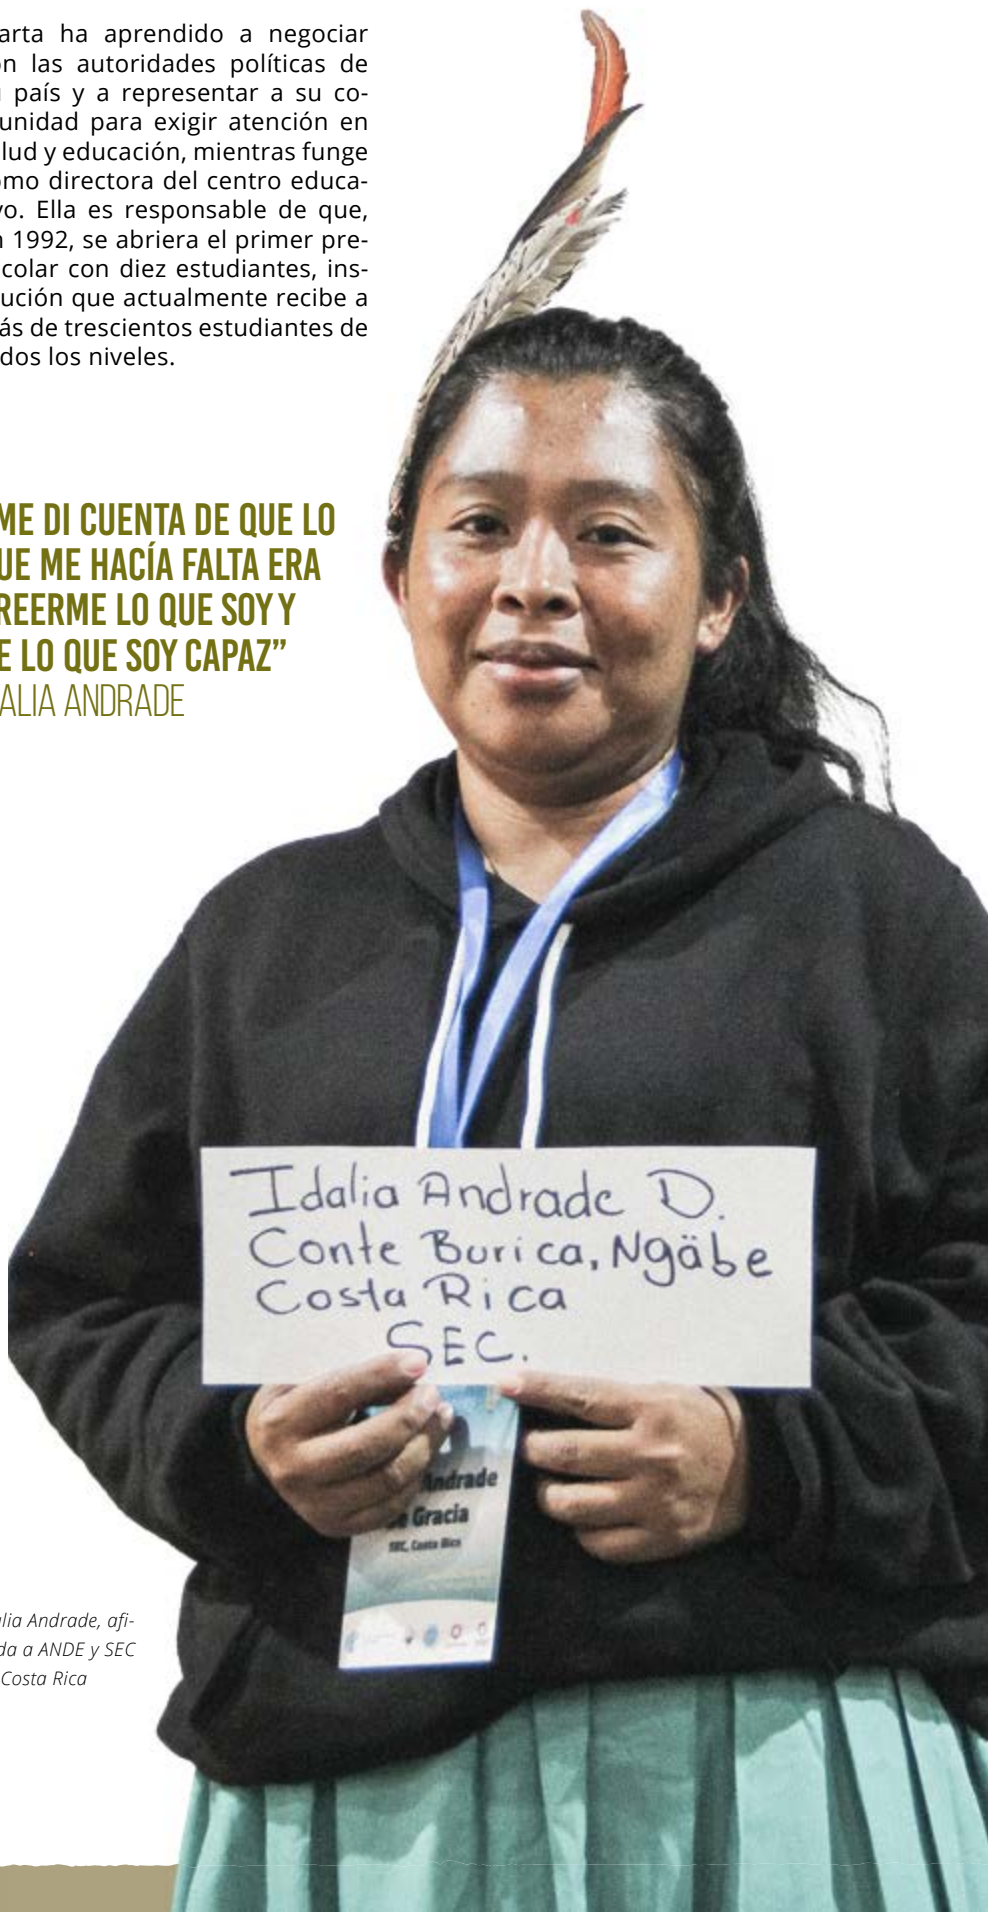 arta ha aprendido a negociar
on las autoridades políticas de
país y a representar a su co-
unidad para exigir atención en
lud y educación, mientras funge
omo directora del centro educa-
vo. Ella es responsable de que,
n 1992, se abriera el primer pre-
colar con diez estudiantes, ins-
ución que actualmente recibe a
ás de trescientos estudiantes de
dos los niveles.
ME DI CUENTA DE QUE LO
UE ME HACÍA FALTA ERA
REERME LO QUE SOY Y
E LO QUE SOY CAPAZ”
ALIA ANDRADE
Idalia Andrade D.
Conte Burica, Ngäbe
Costa Rica
SEC.
Andrade
Gracia
SEC, Costa Rica
lia Andrade, afi-
da a ANDE y SEC
Costa Rica